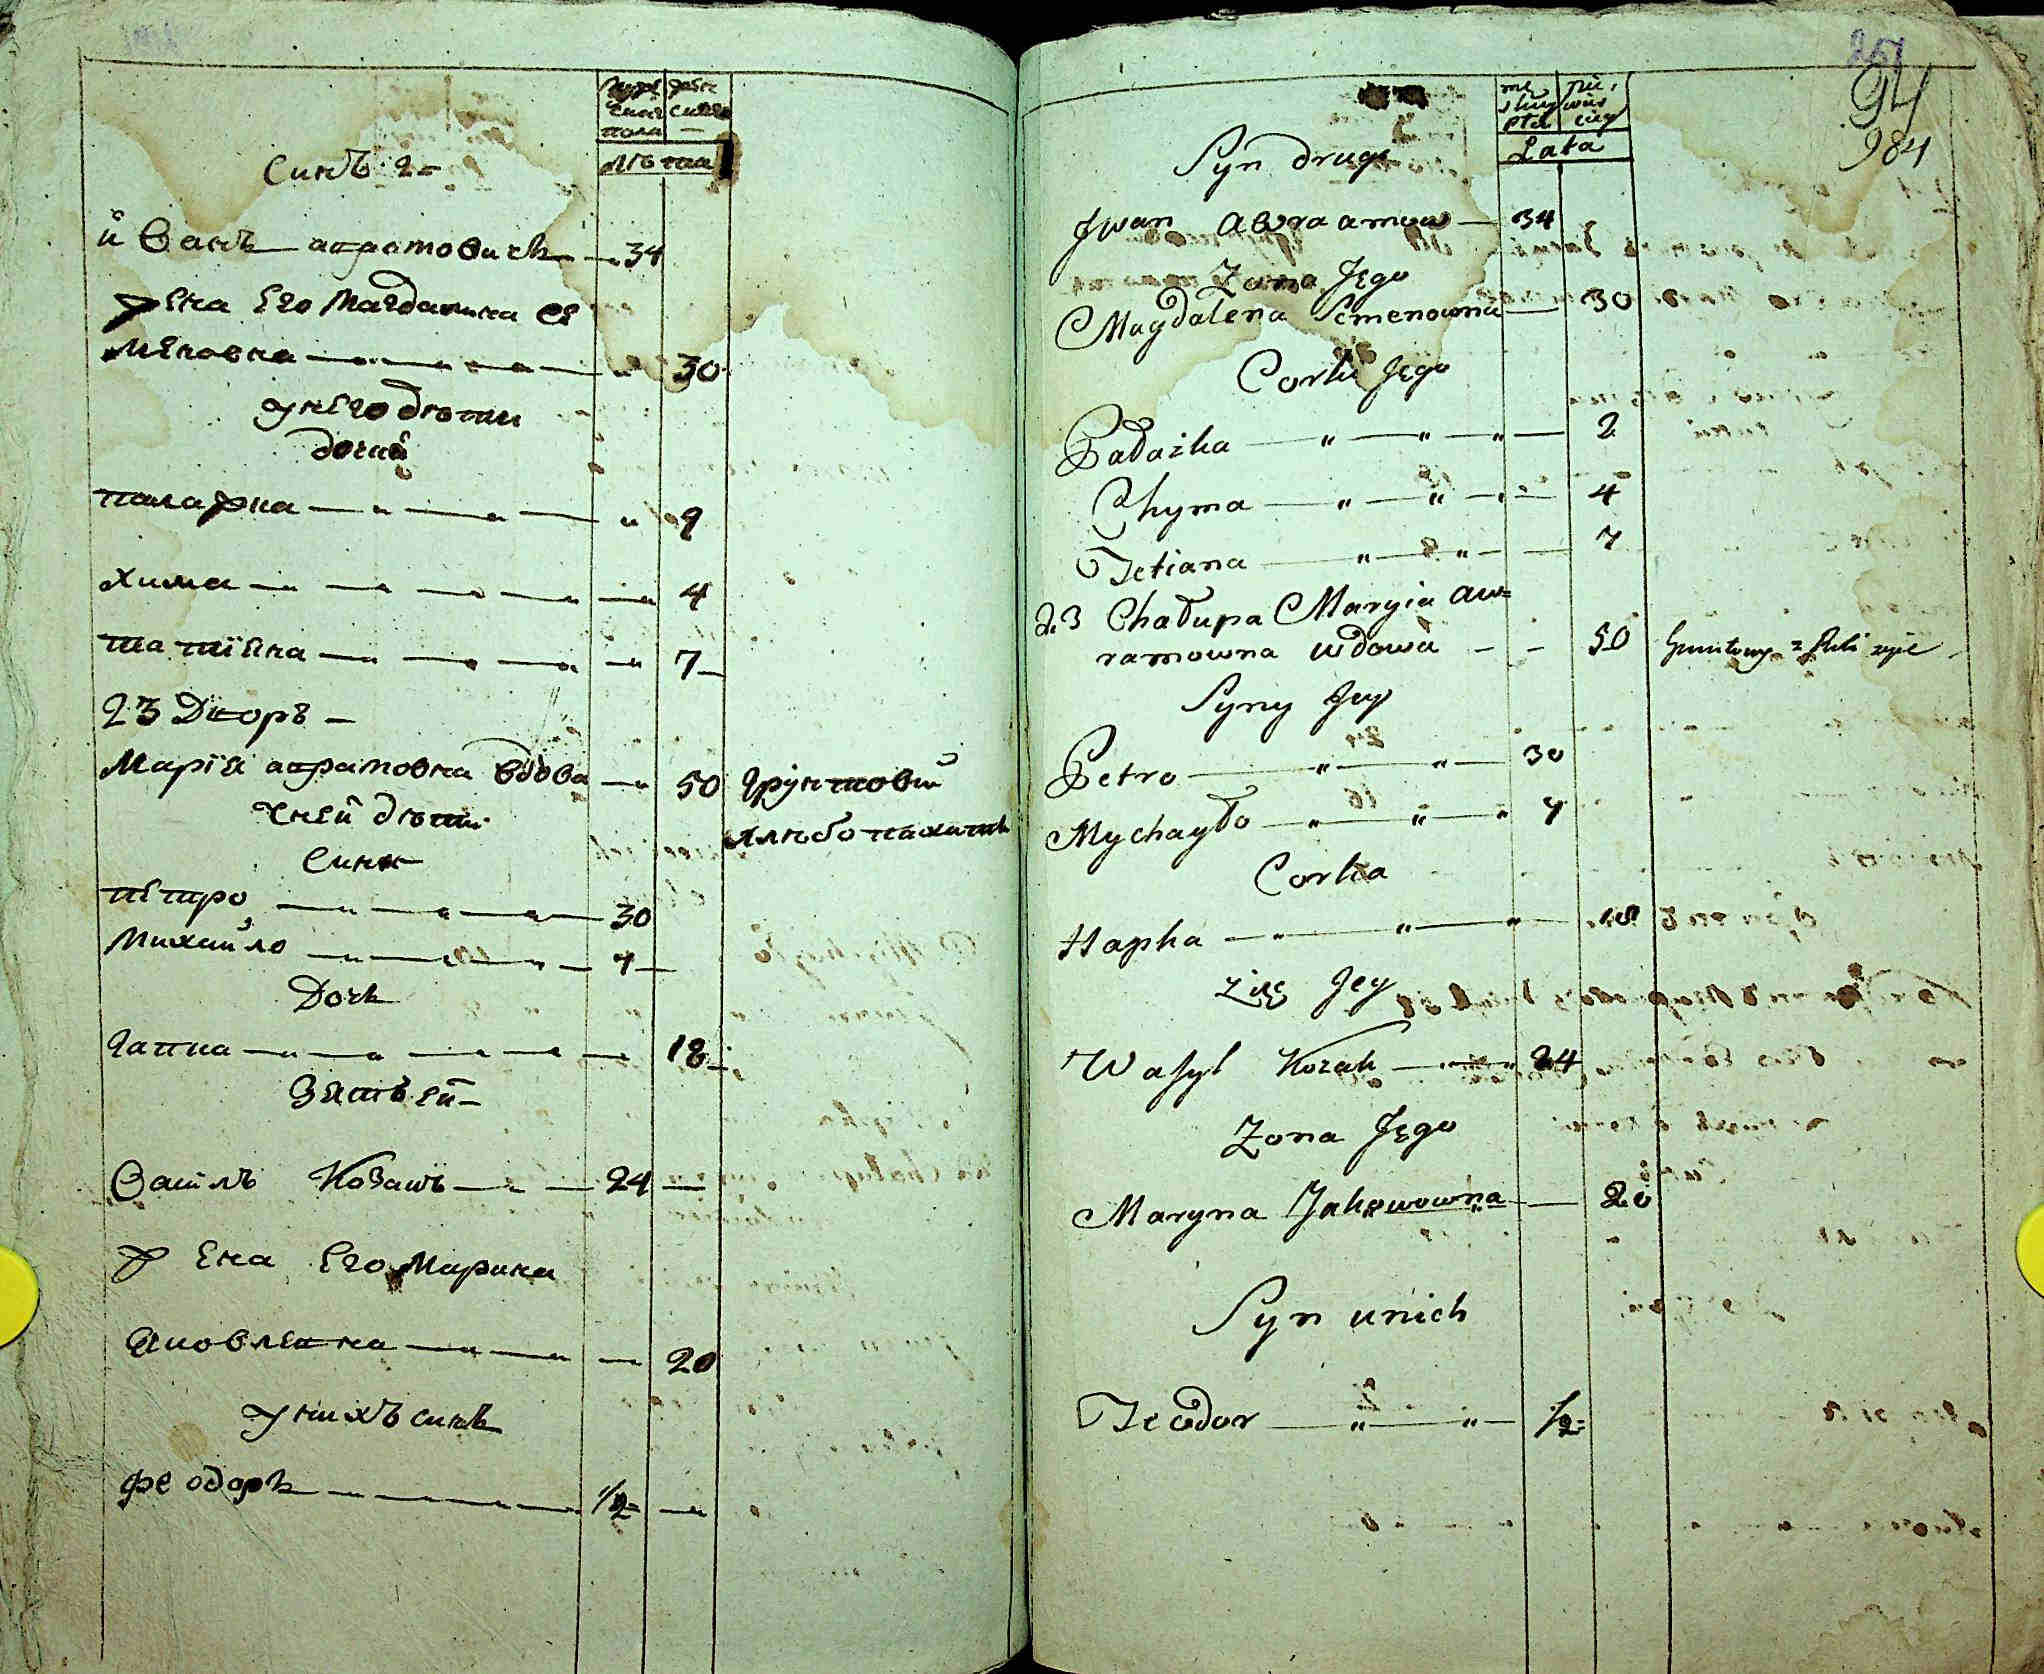 Синъ 2-
Лѣта
иванъ аврамовичъ 34
жена Его Магдалина Се
меновна 30
унего дѣти
дочки
палажка 9
хима 4
татіяна 7
23 Дворъ
Марія аврамовна вдова 50 грунтовий
унеи дѣти
хлѣбопахатъ
Сини
петро 30
Михайло 7
Дочь
гапка 18
Зять еи
Василь Козакъ 24
жена Его Марина
Яковлевна 20
унихъ синъ
феодоръ 1/2
94
984
Lata
Syn drugi
Jwan Abraamow 34
Zona Jego
Magdalena Semenowna 30
Corki Jego
Pałażka 2
Chyma 4
Tetiana 7
23 Chałupa Maryia aw=
ramowna wdowa 50 Gruntowy z Roli żyie
Syny Jey
Petro 30
Mychayło 7
Corka
Hapka 18
Zięc Jey
Wasyl Kozak 24
Zona Jego
Maryna Jakowowna 20
Syn unich
Teodor 1/2